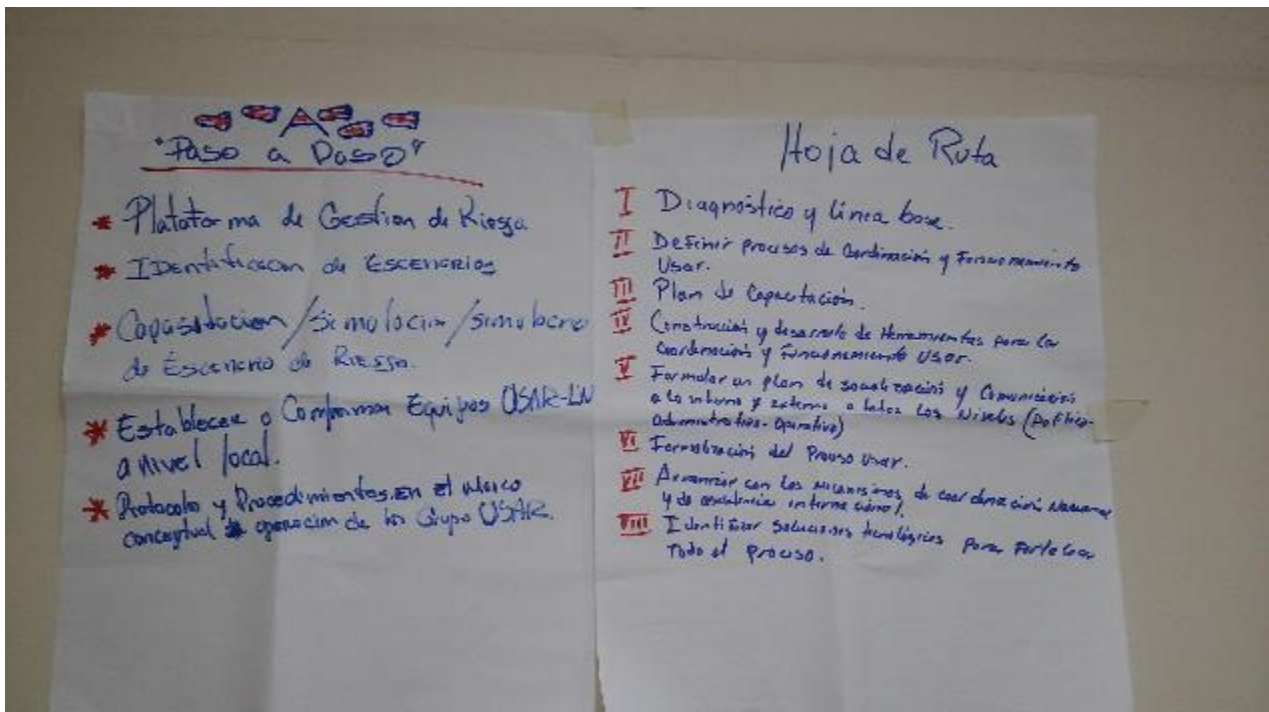 "Paso a Paso"
* Plataforma de Gestion de Riesgo
* IDentificacion de Escenarios
* Capasitacion / Simulacion / simulacro
de Escenario de Riesgo.
* Establecer o Conformar Equipos USAR-LN
a nivel local.
* Protocolo y Procedimientos. En el Marco
conceptual operacion de los Grupo USAR.
Hoja de Ruta
I Diagnóstico y línea base.
II Definir procesos de Coordinación y Funcionamiento
Usar.
III Plan de Capacitación.
IV Construcción y desarrollo de Herramientas para la
Coordinación y Funcionamiento USAR.
V Formular un plan de socialización y Comunicación
a lo interno y externo a todos los Niveles (Político-
Administrativo-Operativo)
VI Formalización del Proceso Usar.
VII Armonizar con los mecanismos de coordinación Nacional
y de asistencia internacional.
VIII Identificar soluciones tecnológicas para Fortalecer
Todo el proceso.